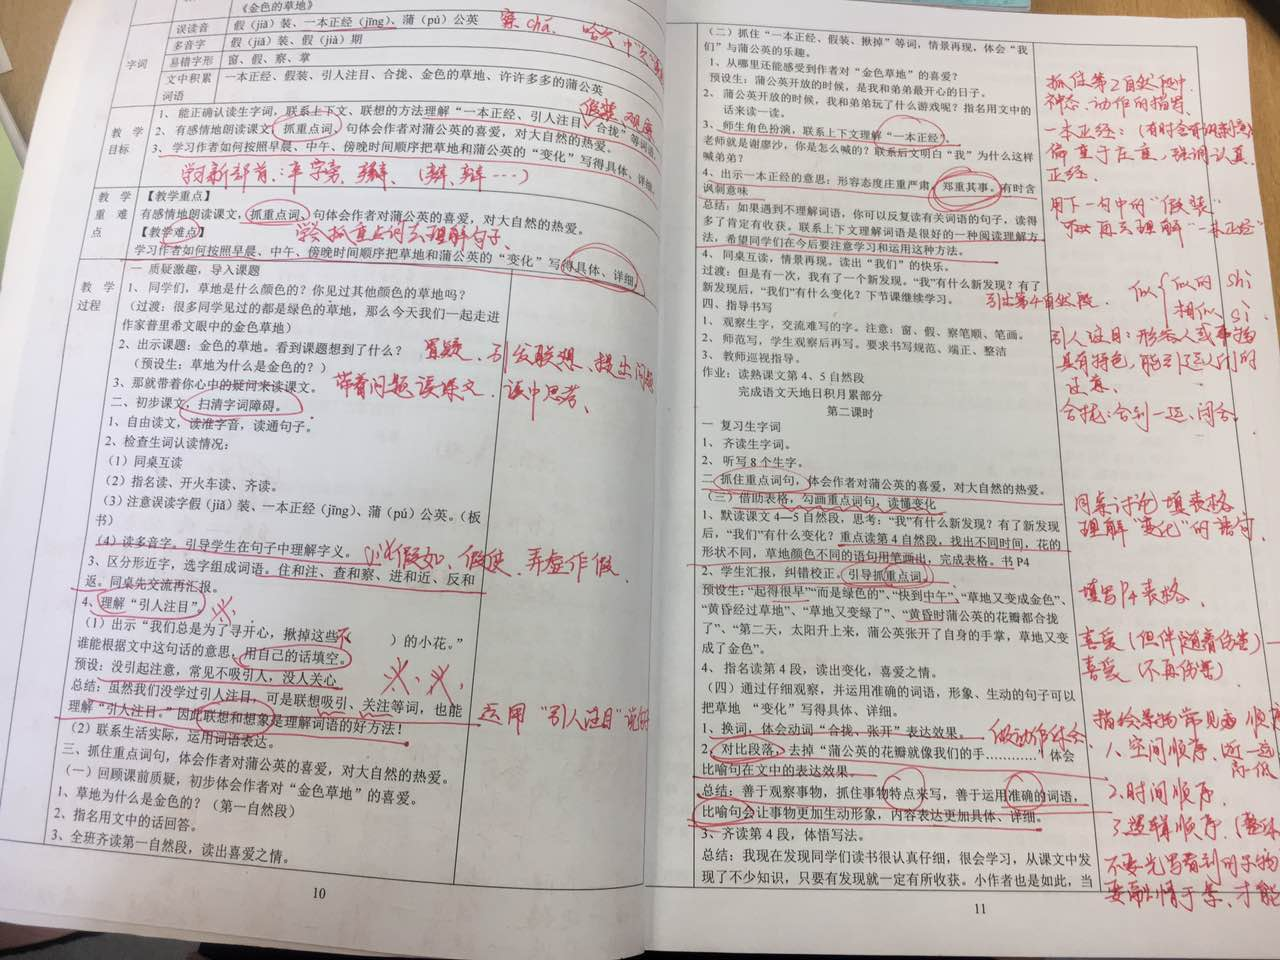 《金色的草地》
字词
误读音 假（jiā）装、一本正经（jīng）、蒲（pú）公英 察chá、
多音字 假（jiǎ）装、假（jià）期
易错字形 窗、假、察、掌
文中积累词语 一本正经、假装、引人注目、合拢、金色的草地、许许多多的蒲公英
教学目标
1、能正确认读生字词，联系上下文、联想的方法理解“一本正经、引人注目、合拢”等词语。
假装
2、有感情地朗读课文，抓重点词、句体会作者对蒲公英的喜爱，对大自然的热爱。
3、学习作者如何按照早晨、中午、傍晚时间顺序把草地和蒲公英的“变化”写得具体、详细。
学习新部首：辛字旁、
教学重难点
【教学重点】
有感情地朗读课文，抓重点词、句体会作者对蒲公英的喜爱，对大自然的热爱。
【教学难点】 学会抓重点词去理解句子、
学习作者如何按照早晨、中午、傍晚时间顺序把草地和蒲公英的“变化”写得具体、详细。
教学过程
一 质疑激趣，导入课题
1、同学们，草地是什么颜色的？你见过其他颜色的草地吗？
（过渡：很多同学见过的都是绿色的草地，那么今天我们一起走进
作家普里希文眼中的金色草地）
2、出示课题：金色的草地。看到课题想到了什么？ 置疑、引发联想、提出问题
（预设生：草地为什么是金色的？）
3、那就带着你心中的疑问来读课文。 带着问题读课文、读中思考、
二、初步课文，扫清字词障碍。
1、自由读文，读准字音，读通句子。
2、检查生词认读情况：
（1）同桌互读
（2）指名读、开火车读、齐读。
（3）注意误读字假（jiǎ）装、一本正经（jīng）、蒲（pú）公英。（板
书）
（4）读多音字。引导学生在句子中理解字义。 假如、假使、弄虚作假、
3、区分形近字，选字组成词语。住和注、查和察、进和近、反和
返。同桌先交流再汇报。
4、理解“引人注目”。
（1）出示“我们总是为了寻开心，揪掉这些（不 ）的小花。”
谁能根据文中这句话的意思，用自己的话填空。
预设：没引起注意，常见不吸引人，没人关心
总结：虽然我们没学过引人注目，可是联想吸引、关注等词，也能
理解“引人注目。”因此联想和想象是理解词语的好方法！ 运用“引人注目”说句
（2）联系生活实际，运用词语表达。
三、抓住重点词句，体会作者对蒲公英的喜爱，对大自然的热爱。
（一）回顾课前质疑，初步体会作者对“金色草地”的喜爱。
1、草地为什么是金色的？（第一自然段）
2、指名用文中的话回答。
3、全班齐读第一自然段，读出喜爱之情。
10
（二）抓住“一本正经、假装、揪掉”等词，情景再现，体会“我
们”与蒲公英的乐趣。
1、从哪里还能感受到作者对“金色草地”的喜爱？
预设生：蒲公英开放的时候，是我和弟弟最开心的日子。
2、蒲公英开放的时候，我和弟弟玩了什么游戏呢？指名用文中的
话来读一读。
3、师生角色扮演，联系上下文理解“一本正经”。
老师就是谢廖沙，你是怎么喊的？联系后文明白“我”为什么这样
喊弟弟？
4、出示一本正经的意思：形容态度庄重严肃，郑重其事。有时含
讽刺意味
总结：如果遇到不理解词语，你可以反复读有关词语的句子，读得
多了肯定有收获。联系上下文理解词语是很好的一种阅读理解方
法，希望同学们在今后要注意学习和运用这种方法。
4、同桌互读，情景再现。读出“我们”的快乐。
过渡：但是有一次，我有了一个新发现。“我”有什么新发现？有了
新发现后，“我们”有什么变化？下节课继续学习。 引出第4自然段、
四、指导书写
1、观察生字，交流难写的字。注意：窗、假、察笔顺、笔画。
2、师范写，学生观察后再写。要求书写规范、端正、整洁
3、教师巡视指导。
作业：读熟课文第4、5自然段
完成语文天地日积月累部分
第二课时
一 复习生字词
1、齐读生字词。
2、听写8个生字。
二 抓住重点词句，体会作者对蒲公英的喜爱，对大自然的热爱。
（三）借助表格，勾画重点词句，读懂变化
1、默读课文4—5自然段，思考：“我”有什么新发现？有了新发现
后，“我们”有什么变化？重点读第4自然段，找出不同时间，花的
形状不同，草地颜色不同的语句用笔画出，完成表格。书P4
2、学生汇报，纠错校正。引导抓重点词。
预设生：“起得很早”“而是绿色的”、“快到中午”、“草地又变成金色”、
“黄昏经过草地”、“草地又变绿了”、“黄昏时蒲公英的花瓣都合拢
了”、“第二天，太阳升上来，蒲公英张开了自身的手掌，草地又变
成了金色”。
4、指名读第4段，读出变化，喜爱之情。
（四）通过仔细观察，并运用准确的词语，形象、生动的句子可以
把草地 “变化”写得具体、详细。
1、换词，体会动词“合拢、张开”表达效果。 做动作体会
2、对比段落，去掉“蒲公英的花瓣就像我们的手…………‘体会
比喻句在文中的表达效果。
总结：善于观察事物，抓住事物特点来写，善于运用准确的词语，
比喻句会让事物更加生动形象，内容表达更加具体、详细。
3、齐读第4段，体悟写法。
总结：我现在发现同学们读书很认真仔细，很会学习，从课文中发
现了不少知识，只要有发现就一定有所收获。小作者也是如此，当
11
抓住第2自然段中
神态、动作的描写
一本正经：（有时含有讽刺意
偏重于庄重，强调认真
正经、
用下一句中的“假装”
再去理解“一本正经”
似 似的 shì
相似 sì
引人注目：形容人或事物
具有特色，能引起人们的
注意、
合拢：合到一起、闭合、
同桌讨论 填表格
理解“变化”的语句
填写P4表格、
喜爱（但伴随着伤害）—
喜爱（不再伤害）
1、空间顺序、近—远
高—低
2、时间顺序、
3、逻辑顺序、
不要光写看到的事物
要融情于景、才能